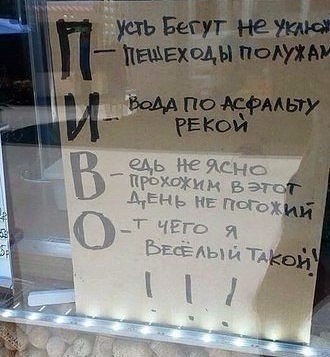 П – усть Бегут не уклюж
пешеходы по лужам
И – вода по асфальту
рекой
В – едь не ясно
прохожим в этот
день не погожий
О – т чего я
Весёлый такой!
!!!